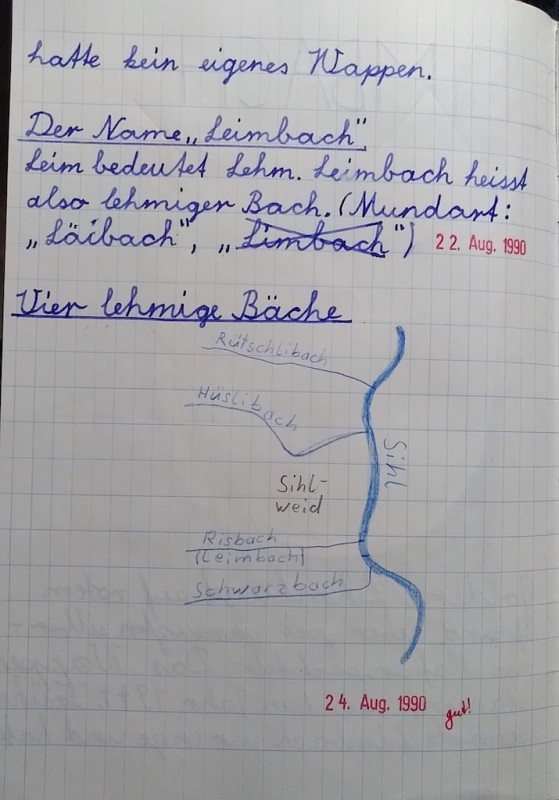 hatte kein eigenes Wappen.
Der Name „Leimbach“
Leim bedeutet Lehm. Leimbach heisst
also lehmiger Bach. (Mundart:
„Läibach“, „Limbach“) 22. Aug. 1990
Vier lehmige Bäche
Rütschlibach
Hüslibach
Sihl
Sihl-
weid
Risbach
(Leimbach)
Schwarzbach
24. Aug. 1990 gut!